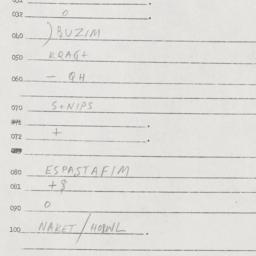 032 0
040 )BUZIM
050 KRAG+
060 - QH
070 S+NIPS
071
072 +
080 ESPASTAFIM
081 +$
090 0
100 NAKET/